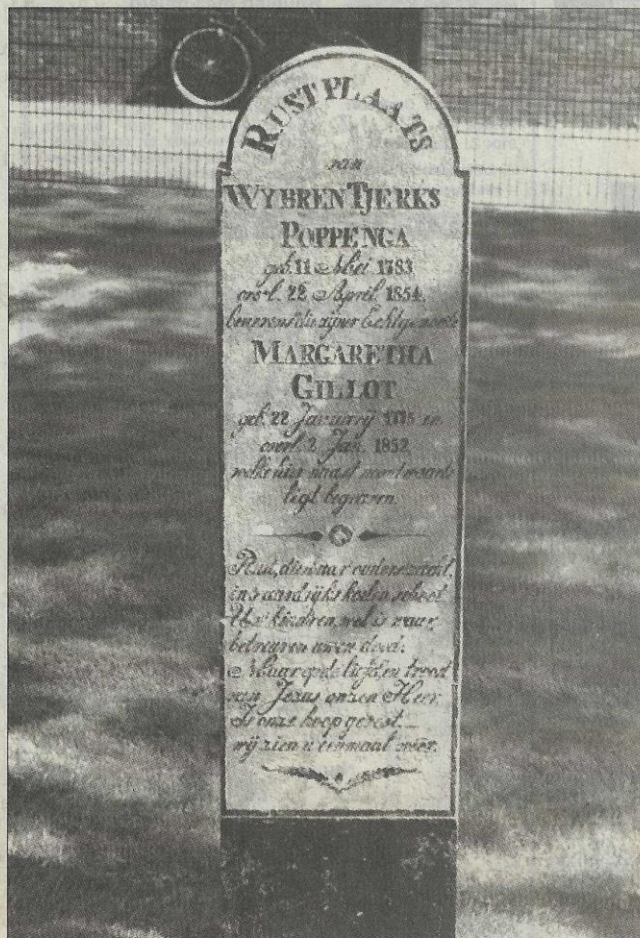 RUSTPLAATS
van
WYBREN TJERKS
POPPENGA
geb. 11 Mei 1783
overl. 22 April 1854,
benevens die zijner Echtgenoote
MARGARETHA
GILLOT
geb. 22 January en
overl. 2 Jan. 1852,
welke hier naast noordwaarts
ligt begraven.
Rust, ouderen zacht,
in 's aardrijks schoot
Uw kindren, wel is waar,
betreuren uwen dood:
Maar op de troost
van Jezus onzen Heer,
Is onze hoop gevest.
wij zien u eenmaal weer.